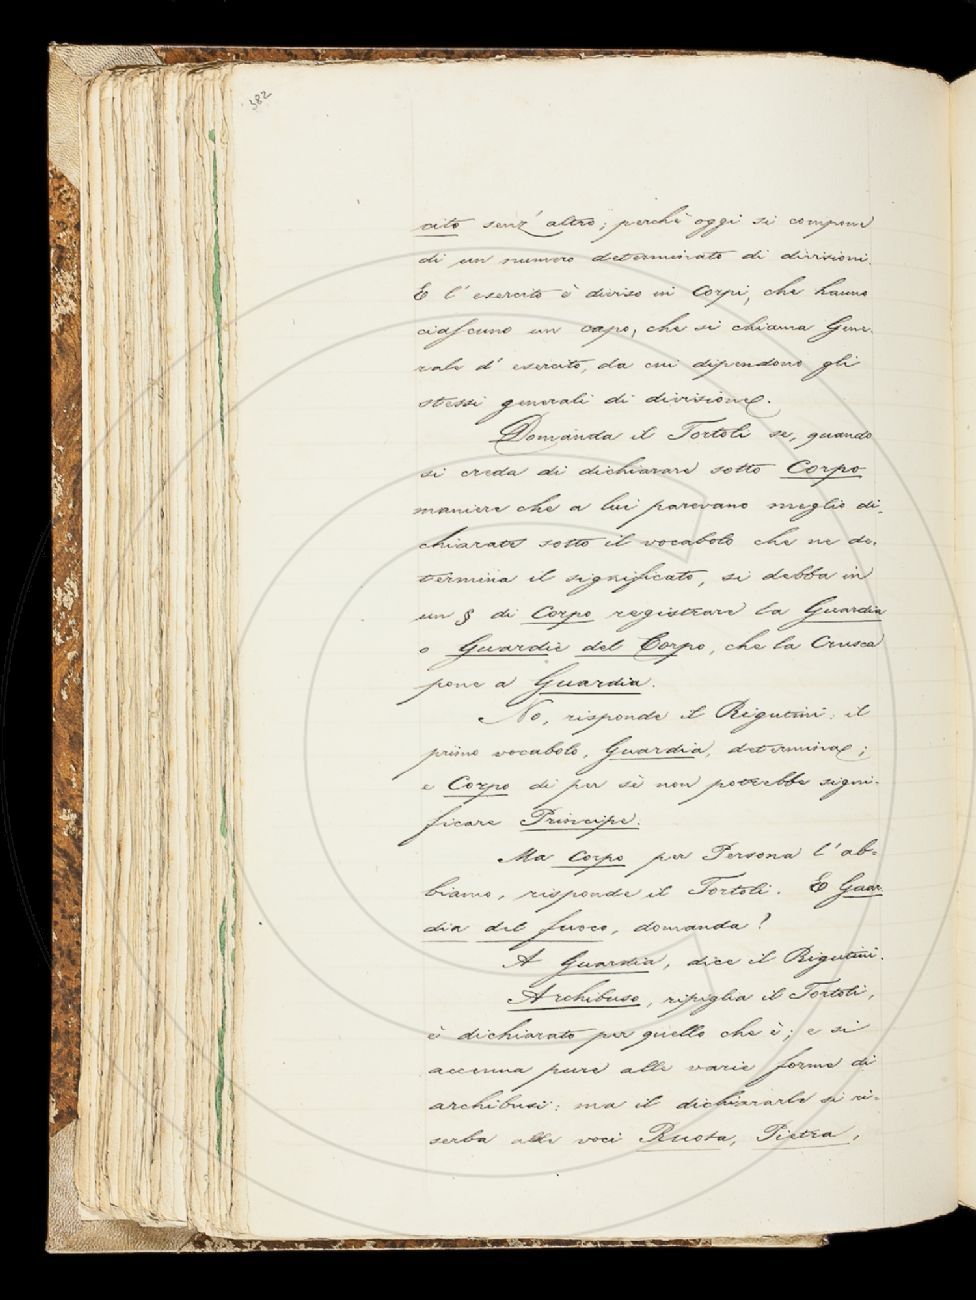 382
cito senz'altro; perchè oggi si compone
di un numero determinato di divisioni.
E l'esercito è diviso in Corpi, che hanno
ciascuno un capo, che si chiama Gene-
rale d'esercito, da cui dipendono gli
stessi generali di divisione.
Domanda il Tortoli se, quando
si creda di dichiarare sotto Corpo
maniere che a lui parevano meglio di-
chiarate sotto il vocabolo che ne de-
termina il significato, si debba in
un § di Corpo registrare la Guardia
o Guardie del Corpo, che la Crusca
pone a Guardia.
No, risponde il Rigutini: il
primo vocabolo, Guardia, determina;
e Corpo di per sè non potrebbe signi-
ficare Principe.
Ma Corpo per Persona l'ab-
biamo, risponde il Tortoli. E Guar-
dia del fuoco, domanda?
A Guardia, dice il Rigutini.
Archibuso, ripiglia il Tortoli,
è dichiarato per quello che è; e si
accenna pure alle varie forme di
archibusi: ma il dichiararle si ri-
serba alle voci Ruota, Pietra,